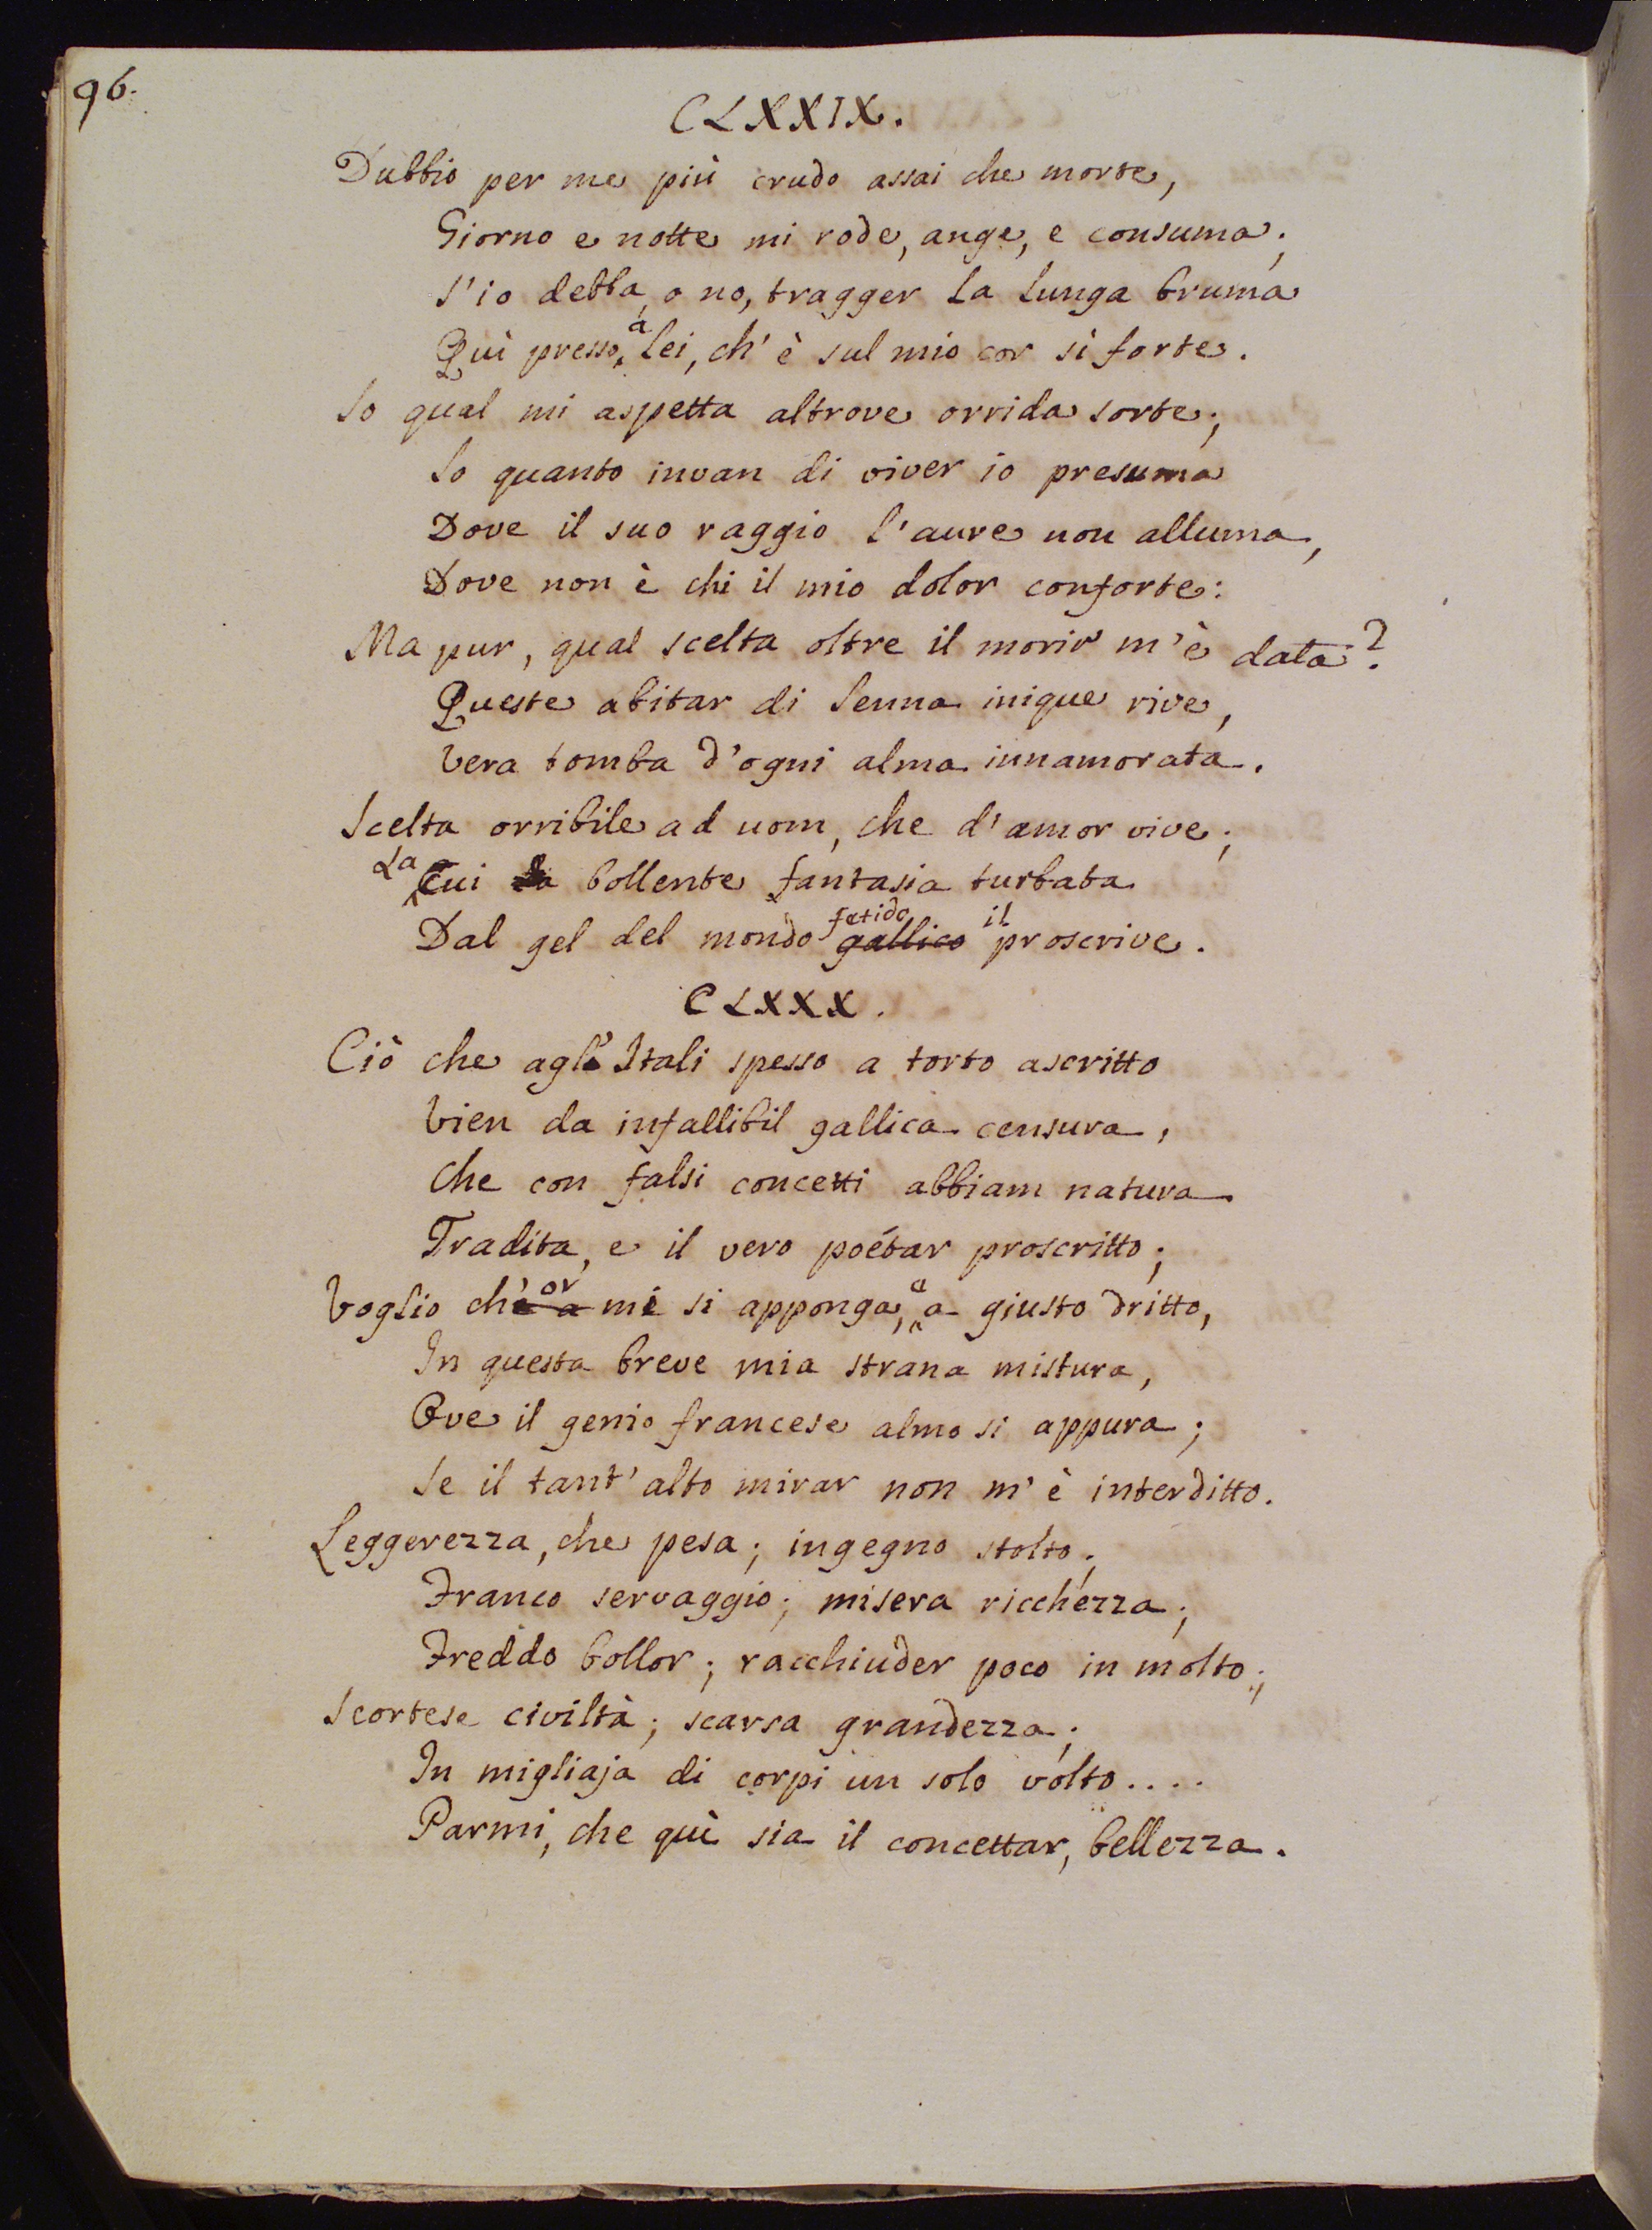 96.
CLXXIX.
Dubbio per me più crudo assai che morte,
Giorno e notte mi rode, ange, e consuma;
S'io debba, o no, tragger la lunga bruma
Quì presso a Lei, ch'è sul mio cor sì forte.
So qual mi aspetta altrove orrida sorte;
So quanto invan di viver io presuma
Dove il suo raggio l'aure non alluma,
Dove non è chi il mio dolor conforte:
Ma pur, qual scelta oltre il morir m'è data?
Queste abitar di Senna inique rive,
Vera tomba d'ogni alma innamorata.
Scelta orribile ad uom, che d'amor vive;
La Cui la bollente fantasia turbata
Dal gel del mondo fetido gallico il proscrive.
CLXXX.
Ciò che agl'Itali spesso a torto ascritto
Vien da infallibil gallica censura,
Che con falsi concetti abbiam natura
Tradita, e il vero poétar proscritto;
Voglio ch'e or a mi si apponga, e a giusto dritto,
In questa breve mia strana mistura,
Ove il genio francese almo si appura;
Se il tant'alto mirar non m'è interditto.
Leggerezza, che pesa; ingegno stolto;
Franco servaggio; misera ricchezza;
Freddo bollor; racchiuder poco in molto;
Scortese civiltà; scarsa grandezza;
In migliaja di corpi un solo vólto....
Parmi, che quì sia il concettar, bellezza.